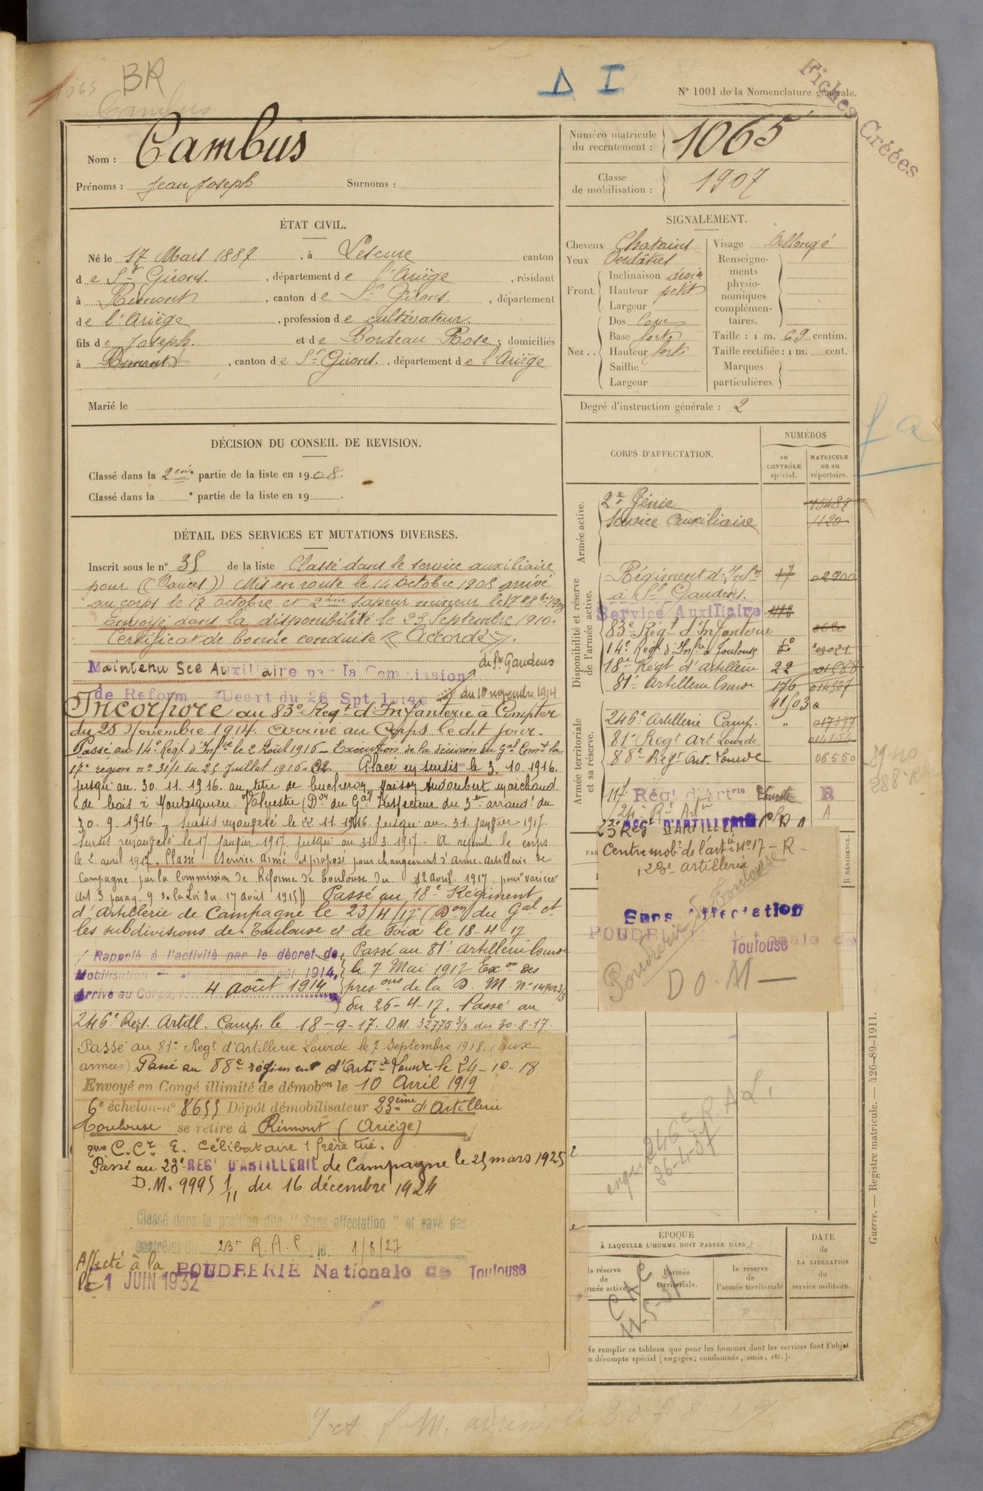 BR
Δ I
N° 1001 de la Nomenclature générale.
Fiches Créées
Nom : Cambus
Prénoms : Jean Joseph Surnoms :
Numéro matricule du recrutement : 1065
Classe de mobilisation : 1907
ÉTAT CIVIL.
Né le 17 Mars 1887, à Lescure canton
de St Girons, département de l'Ariège, résidant
à Rimont, canton de St Girons, département
de l'Ariège, profession de cultivateur
fils de Joseph et de Bordeau Rose, domiciliés
à Rimont, canton de St Girons, département de l'Ariège
Marié le
SIGNALEMENT.
Cheveux Chatains
Yeux
Front. Inclinaison
Hauteur petit
Largeur
Nez. Dos cave
Base forte
Hauteur forte
Saillie
Largeur
Visage allongé
Renseignements physionomiques complémentaires.
Taille : 1 m. 69 centim.
Taille rectifiée : 1 m. cent.
Marques particulières.
Degré d'instruction générale : 2
DÉCISION DU CONSEIL DE REVISION.
Classé dans la 2eme partie de la liste en 1908.
Classé dans la e partie de la liste en 19
DÉTAIL DES SERVICES ET MUTATIONS DIVERSES.
Inscrit sous le n° 35 de la liste Classé dans le service auxiliaire
pour (Varices) Mis en route le 14 octobre 1908 arrivé
au corps le octobre et 2ème sapeur mineur le
Envoyé dans la disponibilité le 25 Septembre 1910.
Certificat de bonne conduite « Accordé ».
Maintenu Sce Auxiliaire par la Commission de St Gaudens
de Reform Décret du 26 Spt du 10 novembre 1914
Incorporé au 83e Regt d'Infanterie à Compter
du 25 Novembre 1914. Arrivé au Corps le dit jour.
Passé au 14e Regt d'Infie le 2 Août 1916 - Exécution de la décision du Gal Comt la
17e région n° 31/1 du 25 Juillet 1916. Placé en sursis le 3.10.1916.
jusqu'au 30.11.1916 au titre de bucheron, Maison Audoubert marchand
de bois à Montesquieu Volvestre (Don du Gal Inspecteur du 3eme arrond. du
30.9.1916. Sursis renouvelé le 22 11 1916 jusqu'au 31 Janvier 1917.
Sursis renouvelé le 17 Janvier 1917 jusqu'au 31.3.1917. A rejoint le corps
le 2 avril 1917. Classé Service armé et proposé pour changement d'arme artillerie de
Campagne par la Commission de Réforme de Toulouse du 12 avril 1917 pour varices
Art. 3 parag. 9 de la Loi du 17 août 1915)) Passé au 18e Régiment
d'Artillerie de Campagne le 23/4/17 (Don du Gal ct
les subdivisions de Toulouse et de Foix le 18-4-17
Rappelé à l'activité par le décret de Mobilisation août 1914.
Arrivé au Corps, 4 août 1914
Passé au 81e Artillerie Lourde
le 7 Mai 1917 Exon des
presons de la D. M. n°
du 26-4-17. Passé au
246e Regt. Artill. Camp. le 18-9-17. D.M. 32775 3/3 du 30-8-17.
Passé au 81e Regt d'Artillerie Lourde le 7 Septembre 1918. (aux
armées) Passé au 88e régiment d'Artie Lourde le 24-10-18
Envoyé en Congé illimité de démobon le 10 Avril 1919
6e échelon n° 8655 Dépôt démobilisateur 23ème d'Artillerie
Toulouse se retire à Rimont (Ariège)
Célibataire 1 frère tué.
Passé au 23e REGt D'ARTILLERIE de Campagne le 25 mars 1925
D.M. 9995 1/11 du 16 décembre 1924
Classé dans la position dite "Sans affectation" et rayé des
contrôles du 23e R.A.C. le 1/8/27
Affecté à la POUDRERIE Nationale de Toulouse
le 1 JUIN 1932
CORPS D'AFFECTATION.
NUMÉROS
AU CONTRÔLE spécial.
MATRICULE ou au répertoire.
Armée active.
2e Génie 15487
Service auxiliaire 1120
Disponibilité et réserve de l'armée active.
Régiment d'Infie 17 02200
à St Gaudens.
Service Auxiliaire
83e Regt d'Infanterie
14e Regt d'Infie Toulouse
18e Regt d'Artillerie 22
81e Artillerie Lourde 176
41/03
Armée territoriale et sa réserve.
246e Artillerie Camp. "
81e Regt Art. Lourde
88e Regt Art. Lourde 06550
117 Régt d'Artie R
A
23e REGt D'ARTILLERIE
Centre mob. de l'artie n° 17 - R -
artillerie
Sans Affectation
POUDRERIE Nationale de
Toulouse
Poudrerie Toulouse
DOM -
246e R.A.L.
26-4-37
ÉPOQUE
À LAQUELLE L'HOMME DOIT PASSER DANS :
la réserve de l'armée active
l'armée territoriale.
la réserve de l'armée territoriale
DATE de LA LIBÉRATION du service militaire.
11-5-37
Ne remplir ce tableau que pour les hommes dont les services font l'objet
d'un décompte spécial (engagés, condamnés, omis, etc.).
Guerre. — Registre matricule. — 426-89-1911.